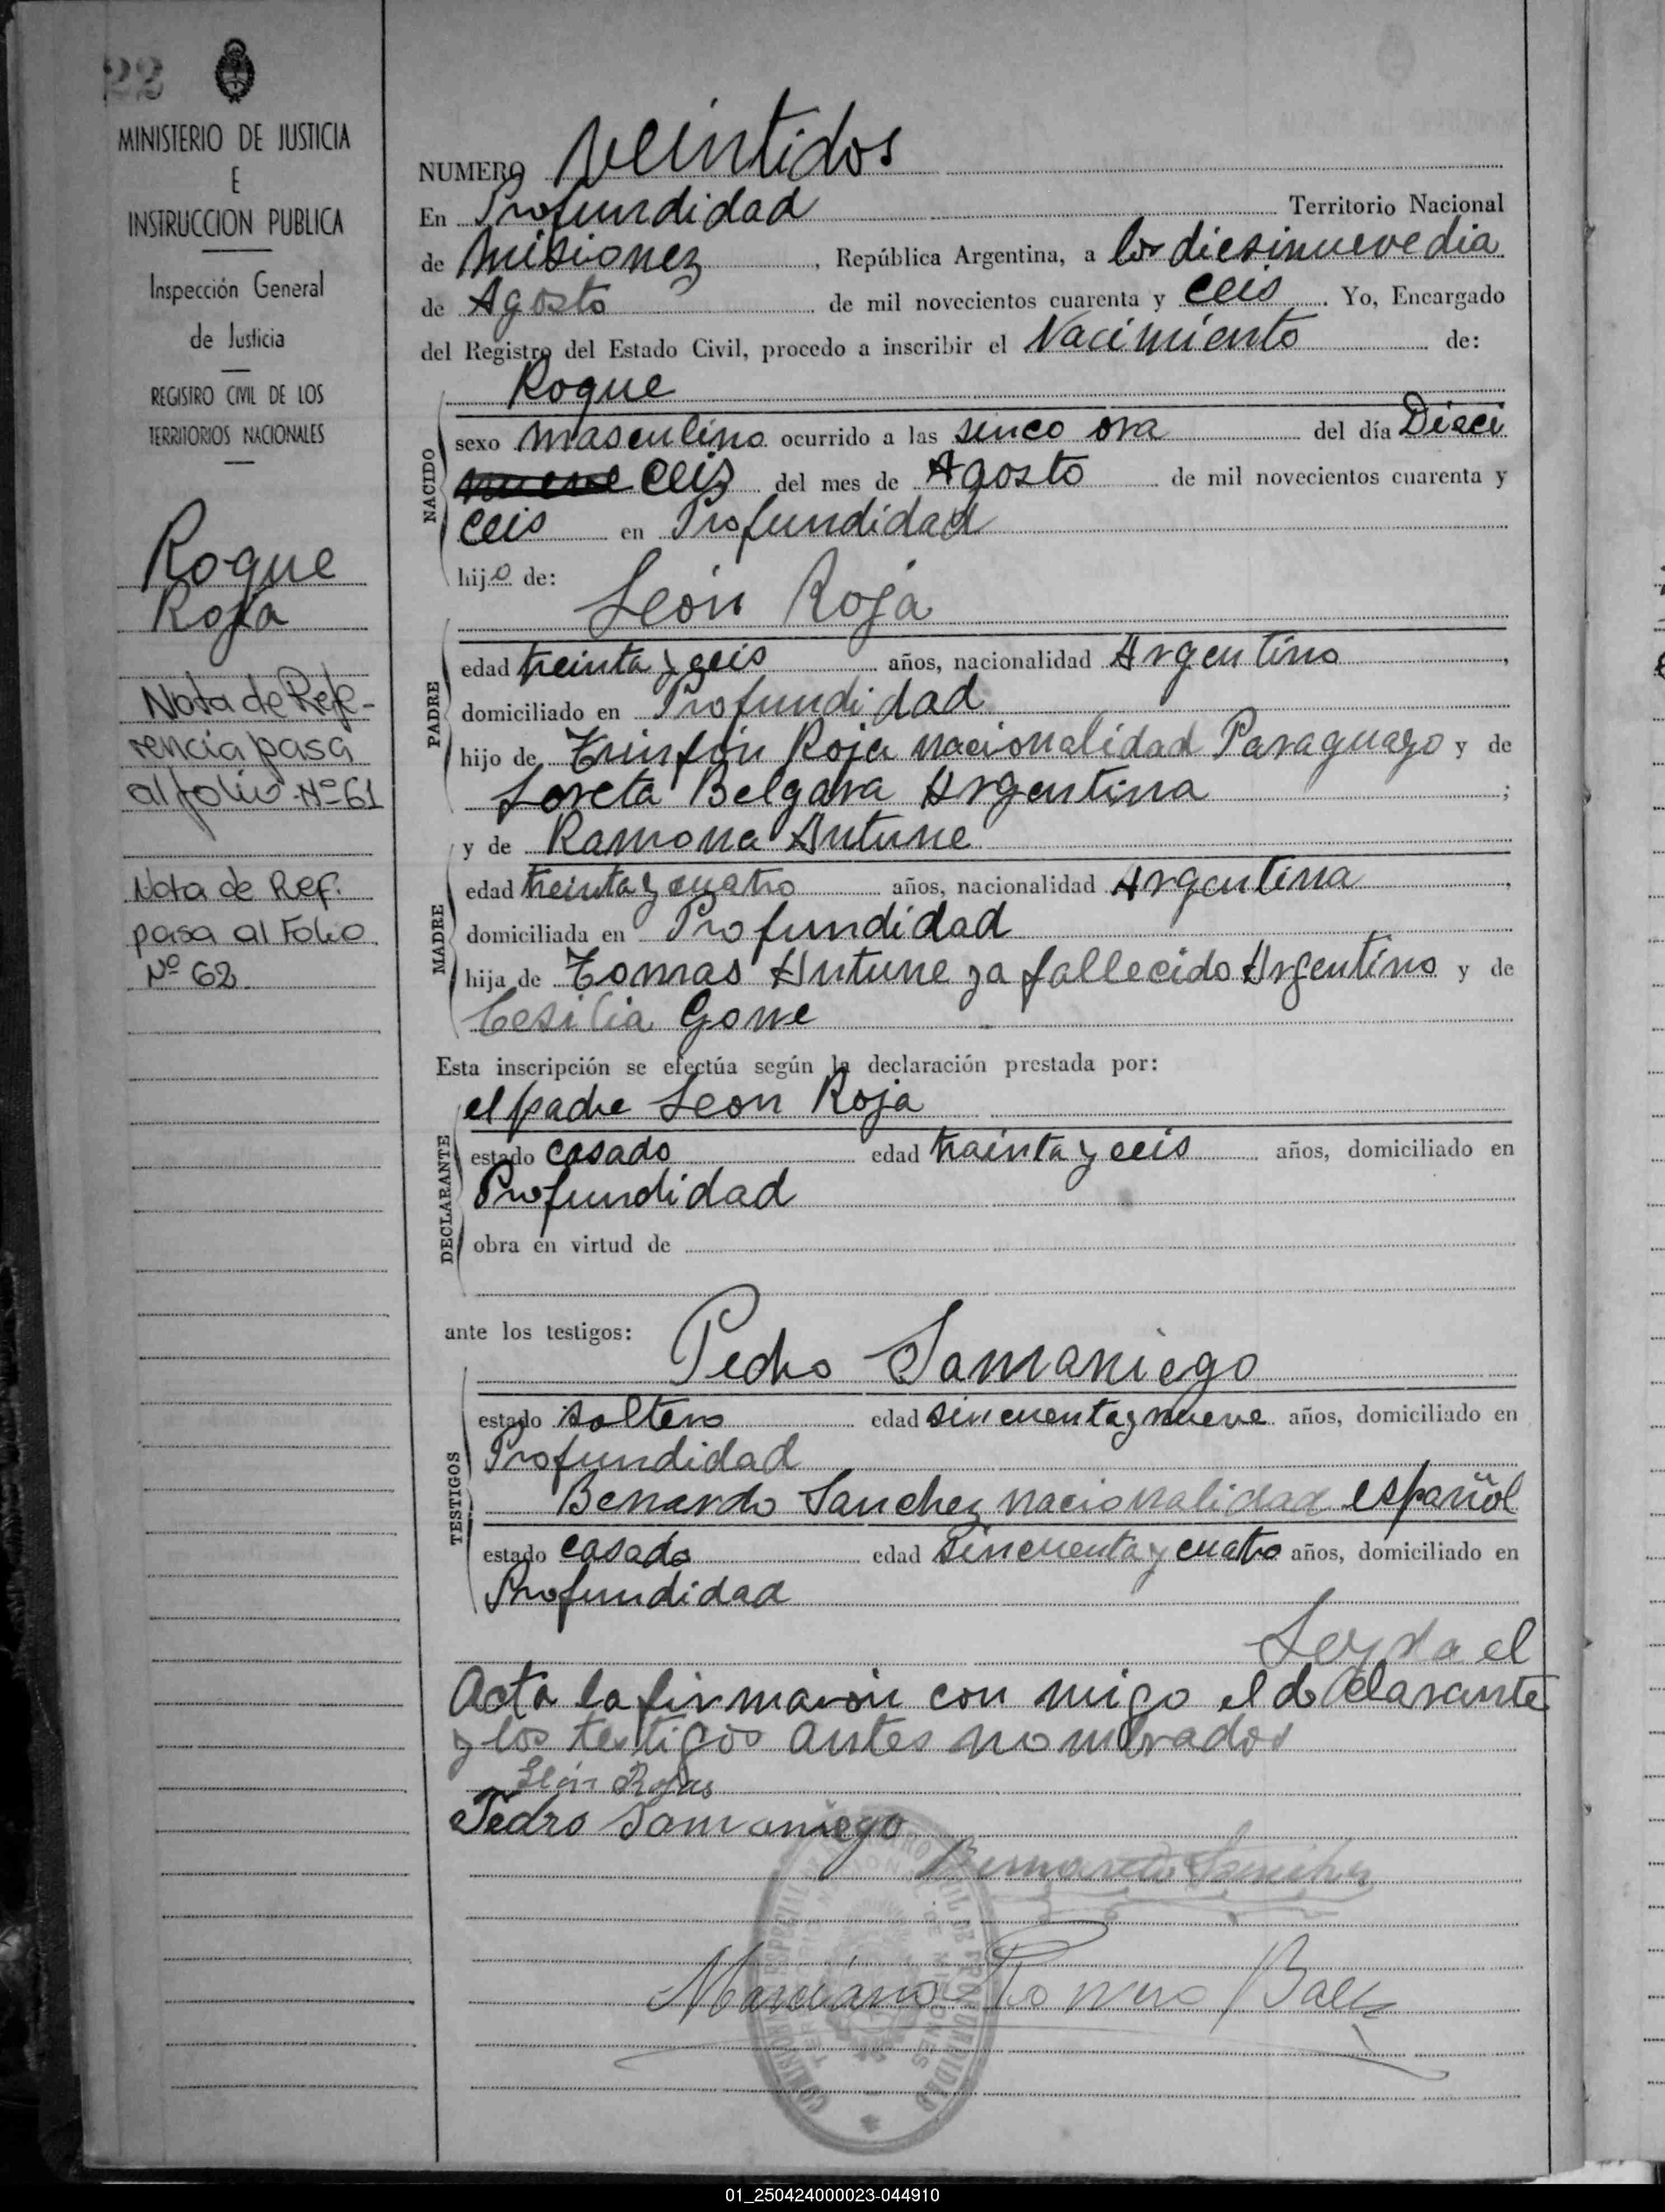 22
MINISTERIO DE JUSTICIA
E
INSTRUCCION PUBLICA
Inspección General
de Justicia
REGISTRO CIVIL DE LOS
TERRITORIOS NACIONALES
Roque
Roja
Nota de Refe-
rencia pasa
al folio Nº 61
Nota de Ref.
pasa al Folio
Nº 62
NUMERO Veintidos
En Profundidad Territorio Nacional
de Misionez, República Argentina, a los diesinueve dia
de Agosto de mil novecientos cuarenta y Ceis. Yo, Encargado
del Registro del Estado Civil, procedo a inscribir el Nacimiento de:
Roque
NACIDO
sexo masculino ocurrido a las sinco ora del día Dieci
nueve Ceis del mes de Agosto de mil novecientos cuarenta y
Ceis en Profundidad
hijo de:
León Roja
PADRE
edad treinta y seis años, nacionalidad Argentino,
domiciliado en Profundidad
hijo de Roja nacionalidad Paraguayo y de
Loreta Belgara Argentina;
y de Ramona Antune
MADRE
edad treinta y cuatro años, nacionalidad Argentina,
domiciliada en Profundidad
hija de Tomas Antune ya fallecido Argentino y de
Cesilia Gome
Esta inscripción se efectúa según la declaración prestada por:
DECLARANTE
el padre Leon Roja
estado casado edad trainta y ceis años, domiciliado en
Profundidad
obra en virtud de
ante los testigos:
TESTIGOS
Pedro Samaniego
estado soltero edad sincuenta y nueve años, domiciliado en
Profundidad
Benardo Sanchez nacionalidad español
estado casado edad sincuenta y cuatro años, domiciliado en
Profundidad
Leyda el
Acta la firmaron con migo el declarante
y los testigos antes nombrados
León Rojas
Pedro Samaniego
Bernardo Sanchez
Marciano Romero Baez
01_250424000023-044910